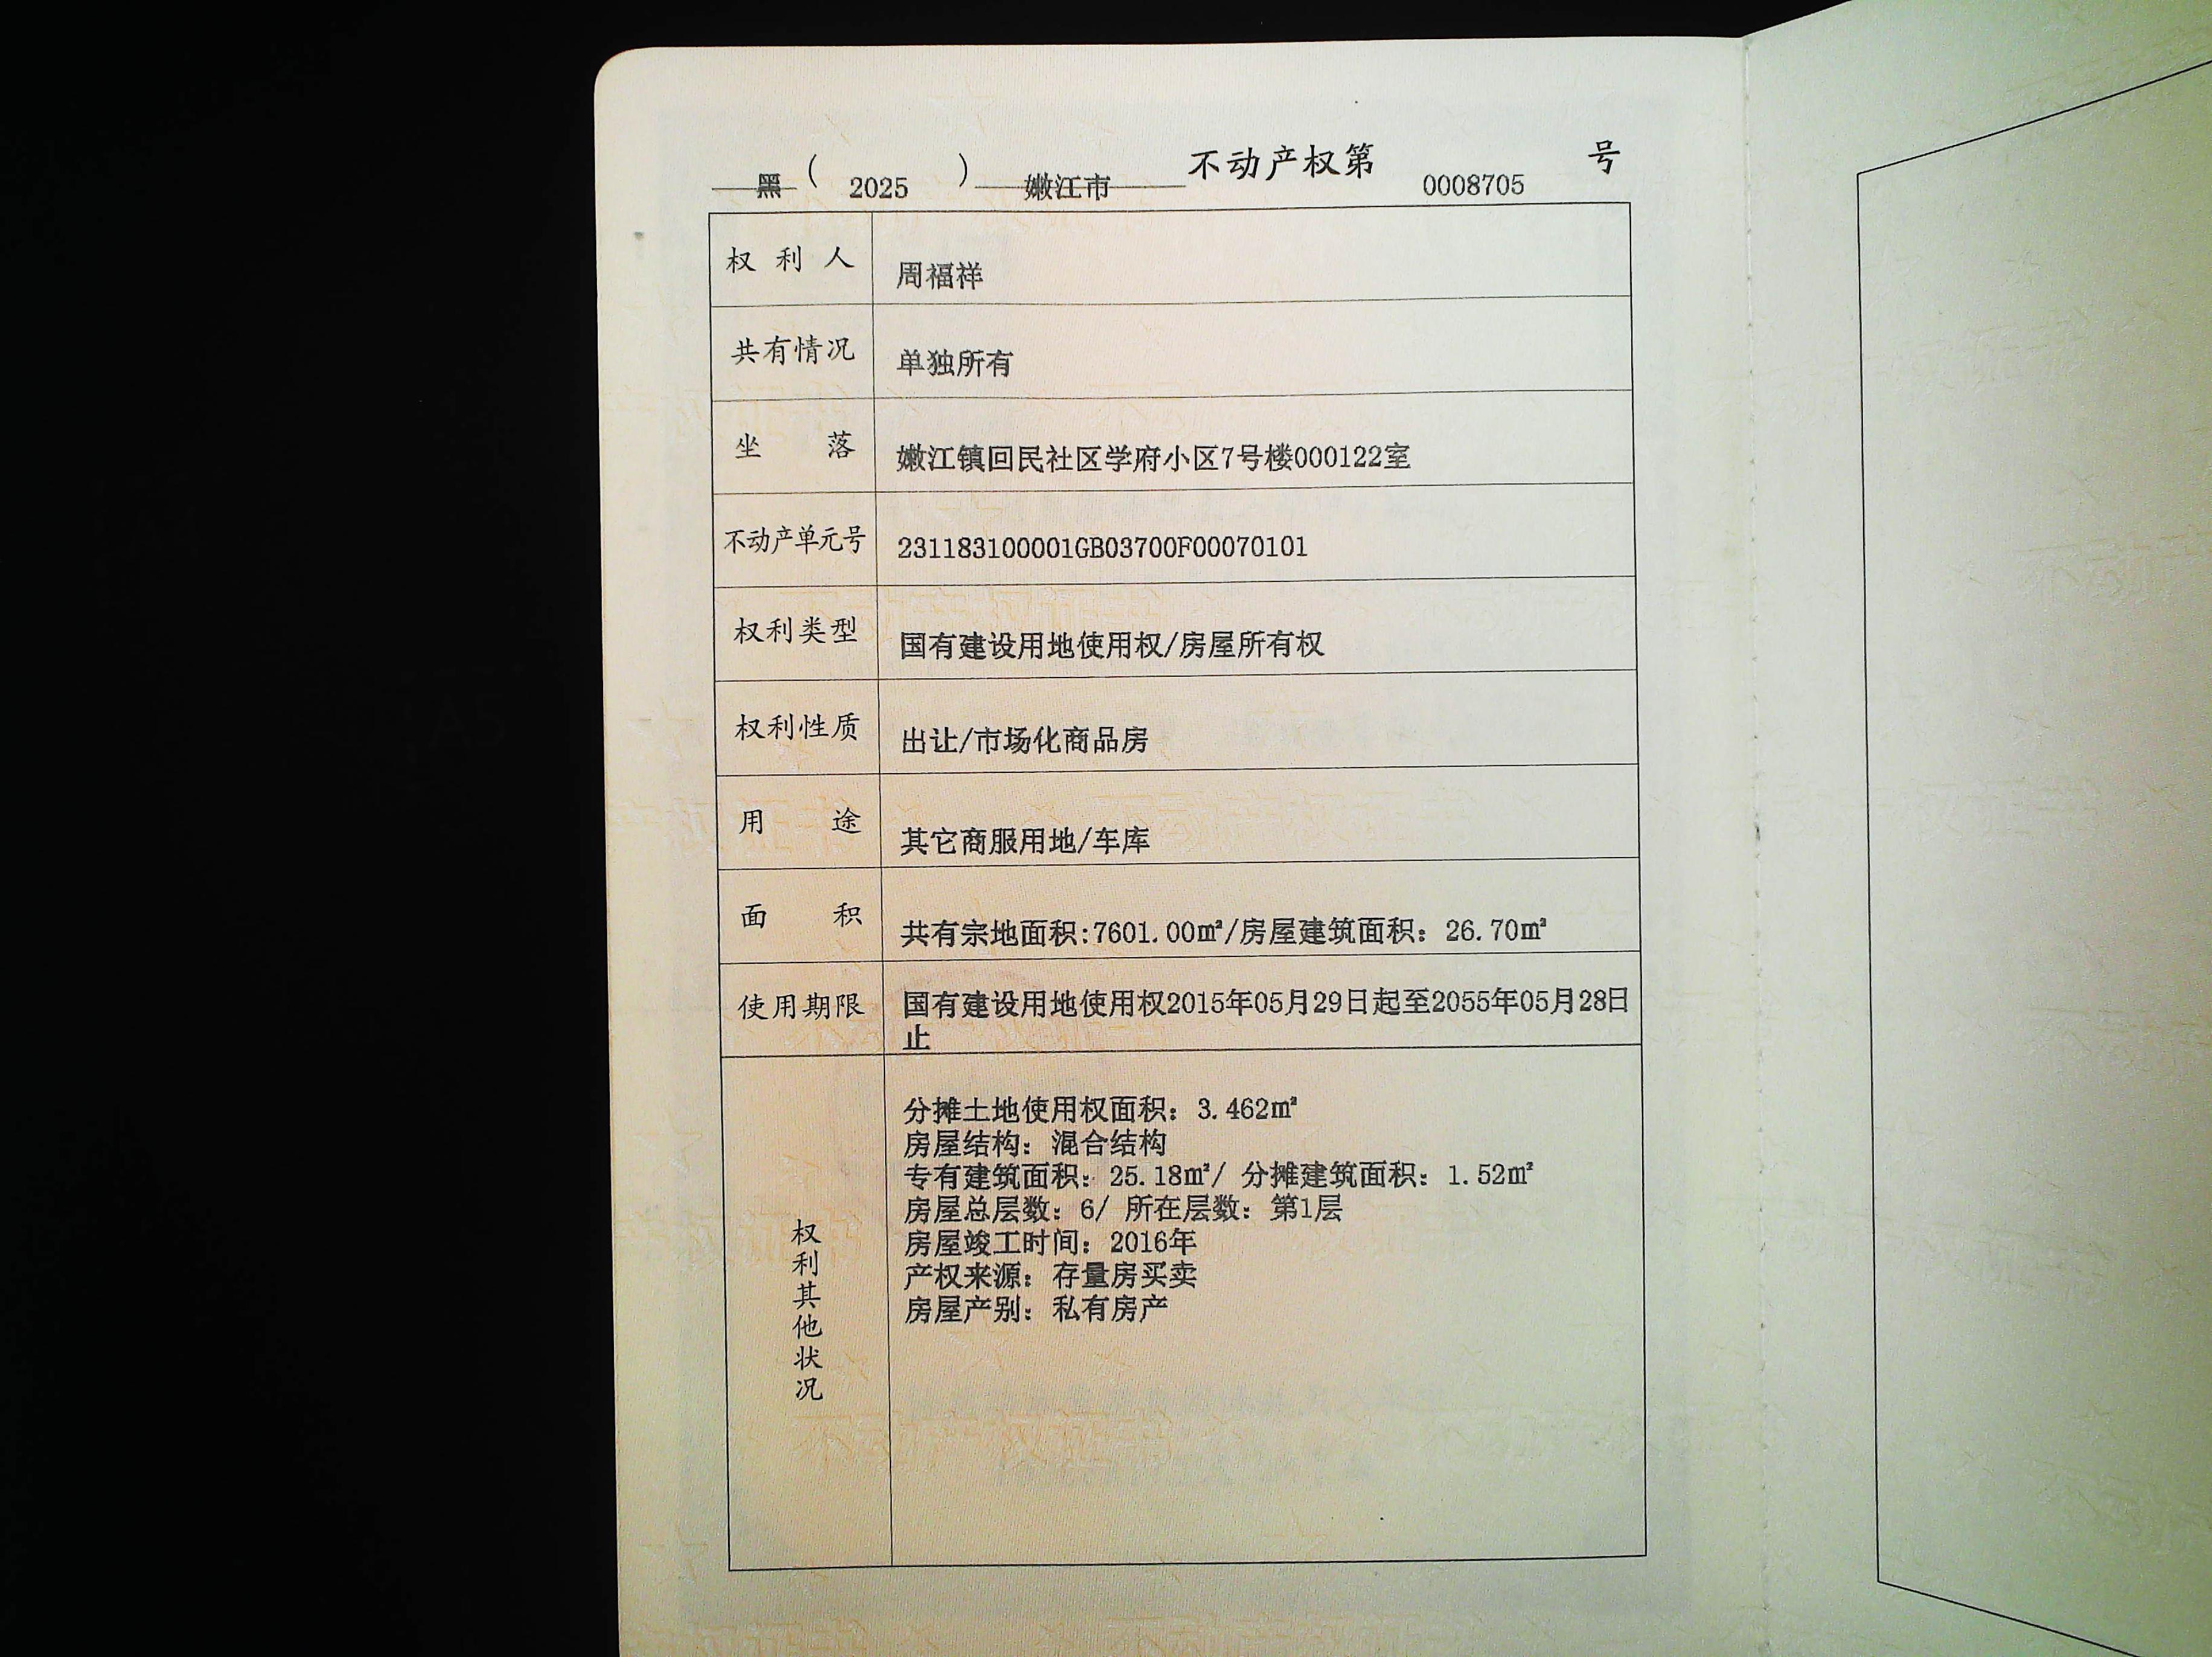 黑 ( 2025 ) 嫩江市 不动产权第 0008705 号
权利人 周福祥
共有情况 单独所有
坐落 嫩江镇回民社区学府小区7号楼000122室
不动产单元号 231183100001GB03700F00070101
权利类型 国有建设用地使用权/房屋所有权
权利性质 出让/市场化商品房
用途 其它商服用地/车库
面积 共有宗地面积:7601.00㎡/房屋建筑面积：26.70㎡
使用期限 国有建设用地使用权2015年05月29日起至2055年05月28日
止
权利其他状况
分摊土地使用权面积：3.462㎡
房屋结构：混合结构
专有建筑面积：25.18㎡/ 分摊建筑面积：1.52㎡
房屋总层数：6/ 所在层数：第1层
房屋竣工时间：2016年
产权来源：存量房买卖
房屋产别：私有房产